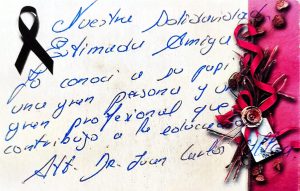 Nuestra Solidaridad
Estimada Amiga
Yo conocí a su papi
una gran persona y un
gran profesional que
contribuyo a la educac
Att. Dr. Juan Carlos